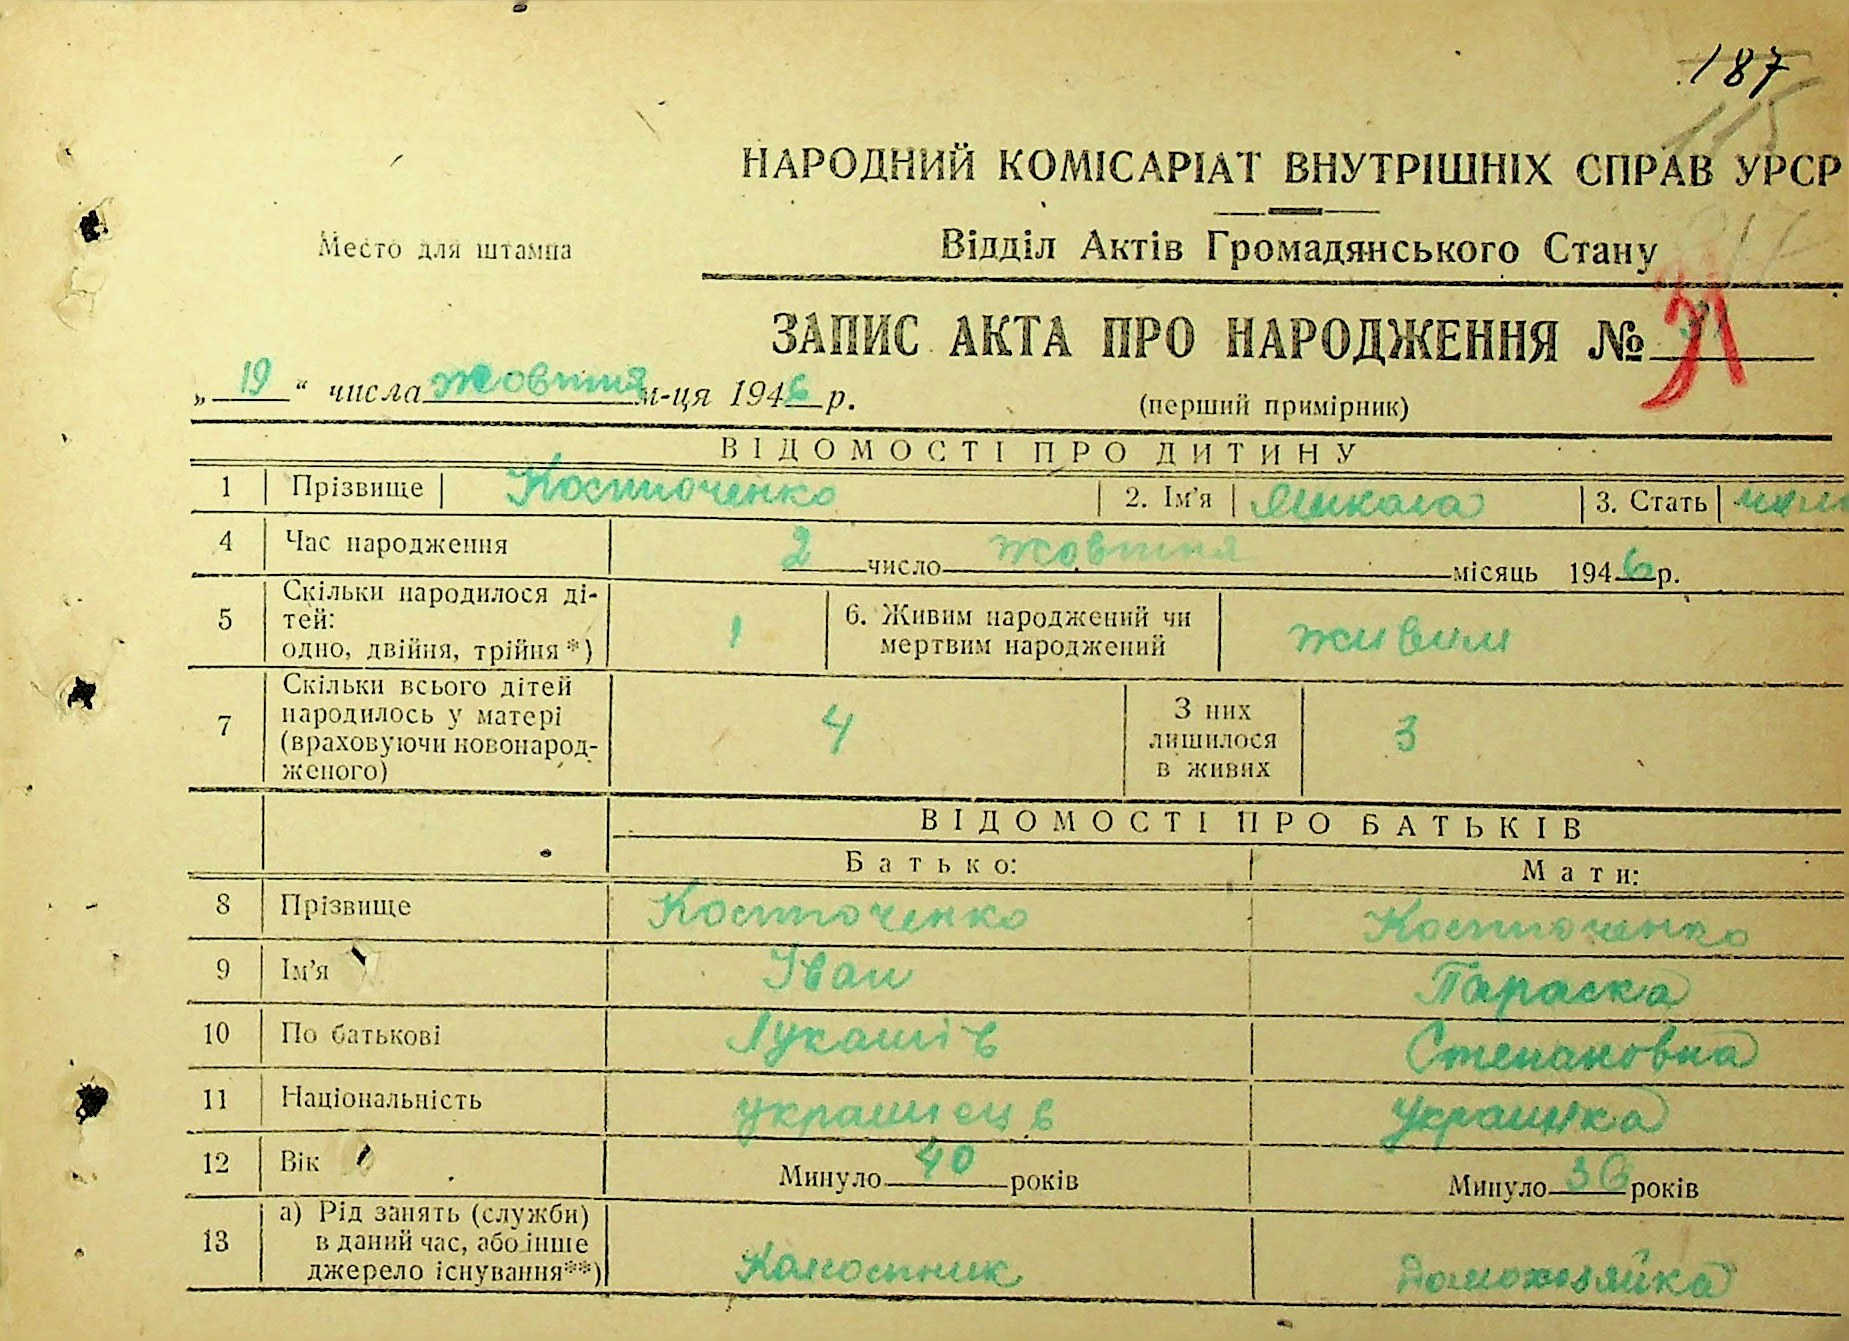 187
115
НАРОДНИЙ КОМІСАРІАТ ВНУТРІШНІХ СПРАВ УРСР
Место для штампа
Відділ Актів Громадянського Стану
ЗАПИС АКТА ПРО НАРОДЖЕННЯ №
„ 19 “ числа жовтня м-ця 1946 р.
(перший примірник)
ВІДОМОСТІ ПРО ДИТИНУ
1 Прізвище Костюченко 2. Ім’я Микола 3. Стать
4 Час народження 2 число жовтня місяць 1946 р.
5 Скільки народилося ді-
тей:
одно, двійня, трійня*) 1 6. Живим народжений чи
мертвим народжений живим
7 Скільки всього дітей
народилось у матері
(враховуючи новонарод-
женого) 4 З них
лишилося
в живих 3
ВІДОМОСТІ ПРО БАТЬКІВ
Батько: Мати:
8 Прізвище Костюченко Костюченко
9 Ім’я Іван Параска
10 По батькові Лукашів Степановна
11 Національність украинец в Украинка
12 Вік Минуло 40 років Минуло 36 років
13 а) Рід занять (служби)
в даний час, або інше
джерело існування**) Колхозник домохозяйка